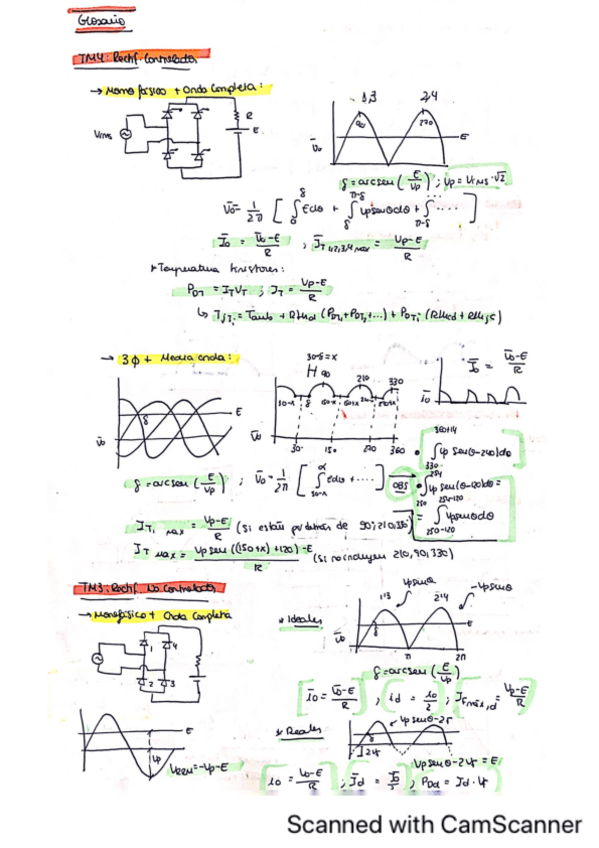 Glosario
TM4: Rectif. Controlados
→ Monofásico + Onda Completa:
Vrms
R
E
1,3
2,4
90
270
V̄o
E
δ = arcsen (E/Vp) ; Vp = Vrms·√2
V̄o = 1/2π [ ∫₀^δ Edθ + ∫_δ^(π-δ) Vpsenθdθ + ∫_(π-δ) .... ]
Īo = (V̄o-E)/R ; ĪT1,2,3,4 max = (Vp-E)/R
Temperatura tiristores:
PDT = IT VT ; IT = (Vp-E)/R
↳ TjTi = Tamb + Rthd (PDT1+PDT2+...) + PDTi (Rthcd + Rthjc)
→ 3φ + Media onda:
30-δ=x
Īo = (V̄o-E)/R
90
210
330
δ
E
V̄o
V̄o
io
30
150
270
360
δ = arcsen (E/Vp) ; V̄o = 1/2π [ ∫ Edθ + .... ]
OBS
∫ Vp sen(θ-240)dθ
330
∫ Vp sen(θ-120)dθ =
= ∫ Vpsenθdθ
250-120
IT1 max = (Vp-E)/R (si están por detrás de 90, 210, 330)
IT max = (Vp sen ((150+x)+120) -E)/R (si no incluyen 210, 90, 330)
TM3: Rectif. No Controlados
→ Monofásico + Onda Completa
* Ideales
Vpsenθ
-Vpsenθ
1-3
2-4
V̄o
E
π
2π
1
4
2
3
δ = arcsen (E/Vp)
īo = (V̄o-E)/R ; id = io/2 ; IFmáx,d = (Vp-E)/R
* Reales
Vpsenθ-2Vf
E
Vp
VRRM = -Vp-E
2Vf
Vpsenθ-2Vf = E
io = (Vo-E)/R ; Īd = Īo/2 ; PDd = Id·Vf
Scanned with CamScanner